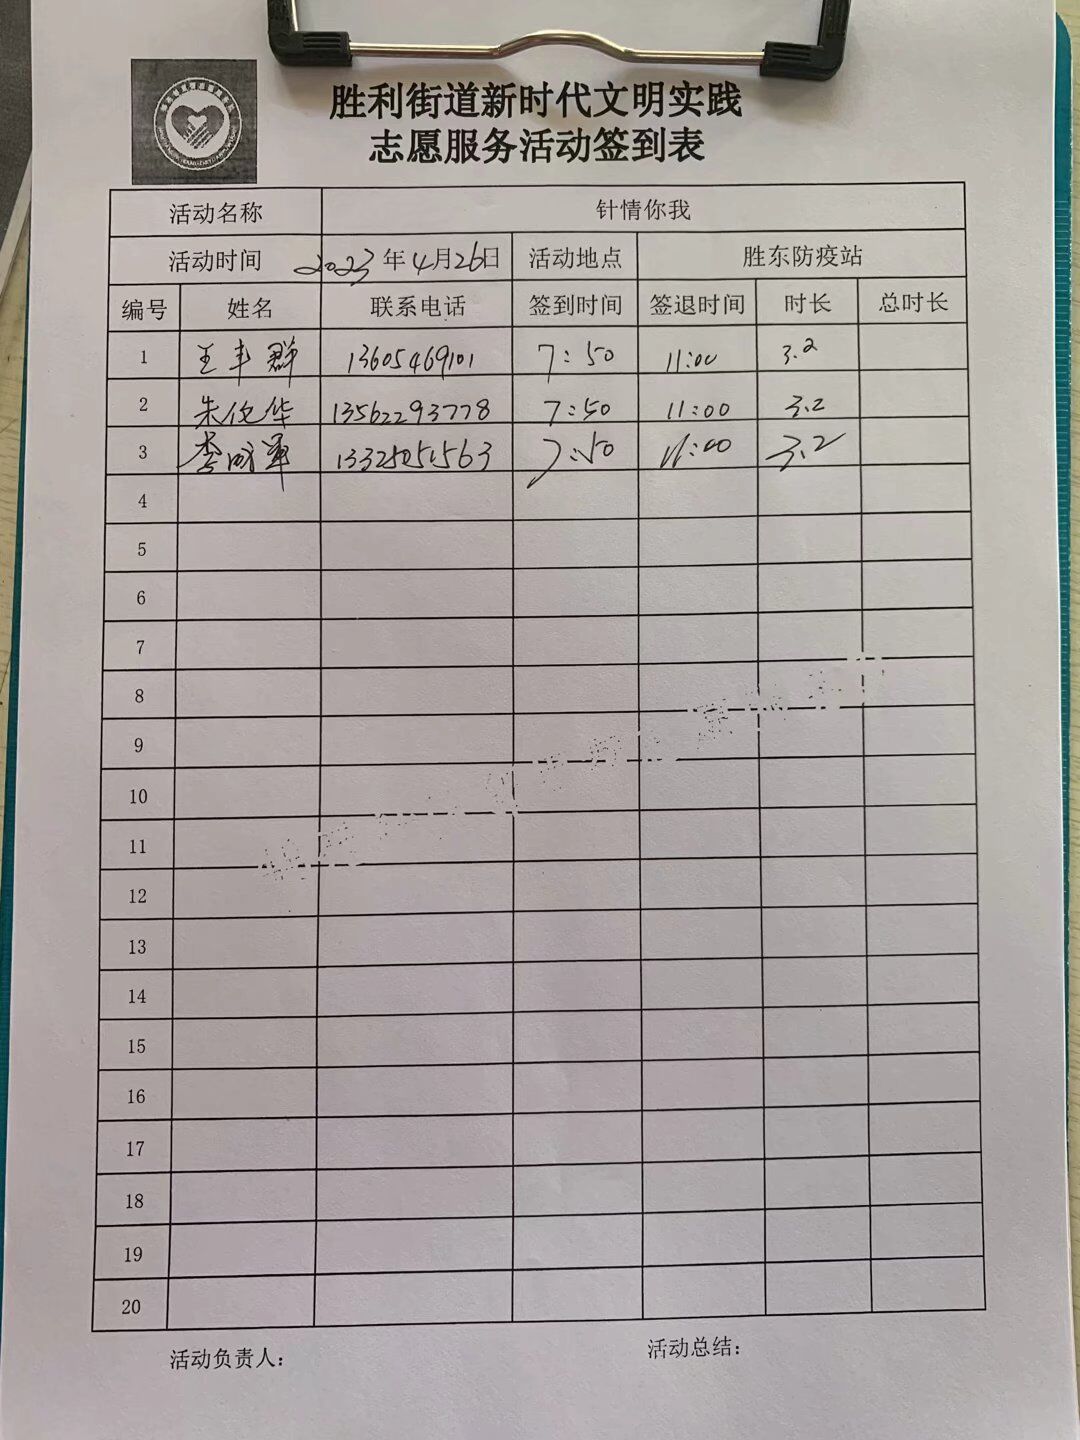 胜利街道新时代文明实践
志愿服务活动签到表
活动名称 针情你我
活动时间 2023年4月26日 活动地点 胜东防疫站
编号 姓名 联系电话 签到时间 签退时间 时长 总时长
1 王丰群 13605469101 7:50 11:00 3.2
2 朱伦华 13562293778 7:50 11:00 3.2
3 李明军 7:50 11:00 3.2
4
5
6
7
8
9
10
11
12
13
14
15
16
17
18
19
20
活动负责人: 活动总结: